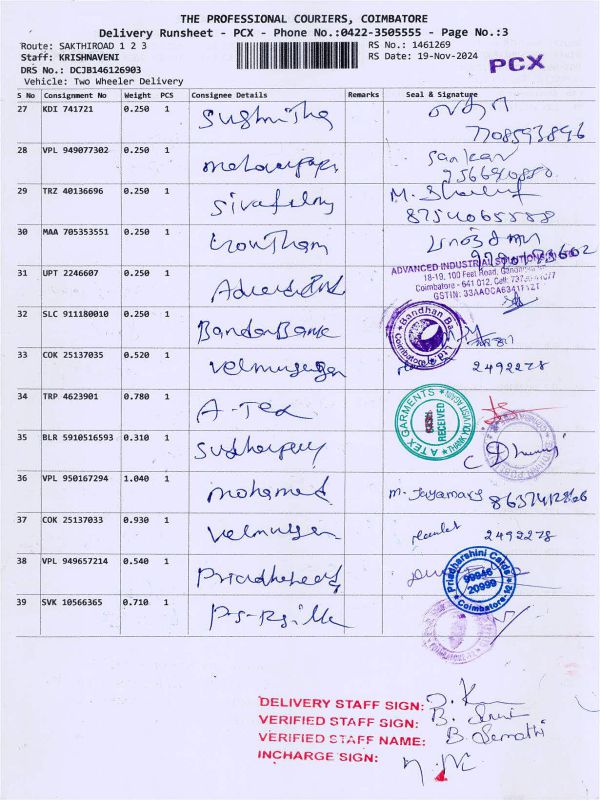 THE PROFESSIONAL COURIERS, COIMBATORE
Delivery Runsheet - PCX - Phone No.:0422-3505555 - Page No.:3
Route: SAKTHIROAD 1 2 3
RS No.: 1461269
Staff: KRISHNAVENI
RS Date: 19-Nov-2024
PCX
DRS No.: DCJB146126903
Vehicle: Two Wheeler Delivery
S No Consignment No Weight PCS Consignee Details Remarks Seal & Signature
27 KDI 741721 0.250 1 Sushmitha
7708593896
28 VPL 949077302 0.250 1 Sankar
29 TRZ 40136696 0.250 1
8754065558
30 MAA 705353551 0.250 1 Gowtham
31 UPT 2246607 0.250 1
ADVANCED INDUSTRIAL SOLUTIONS
18-19, 100 Feet Road,
Coimbatore - 641 012.
32 SLC 911180010 0.250 1 BandanBank
Bandhan Ba
Coimbatore
33 COK 25137035 0.520 1 velmurugan 2492278
34 TRP 4623901 0.780 1 A-Tex
ATEX GARMENTS
RECEIVED
THANK YOU VISIT AGAIN
35 BLR 5910516593 0.310 1
36 VPL 950167294 1.040 1 mohamed M. Jayamary
37 COK 25137033 0.930 1 velmurugan 2492278
38 VPL 949657214 0.540 1
Priadharshini Calds
99946
20999
Coimbatore-12
39 SVK 10566365 0.710 1
DELIVERY STAFF SIGN:
VERIFIED STAFF SIGN:
VERIFIED STAFF NAME: B.
INCHARGE SIGN: